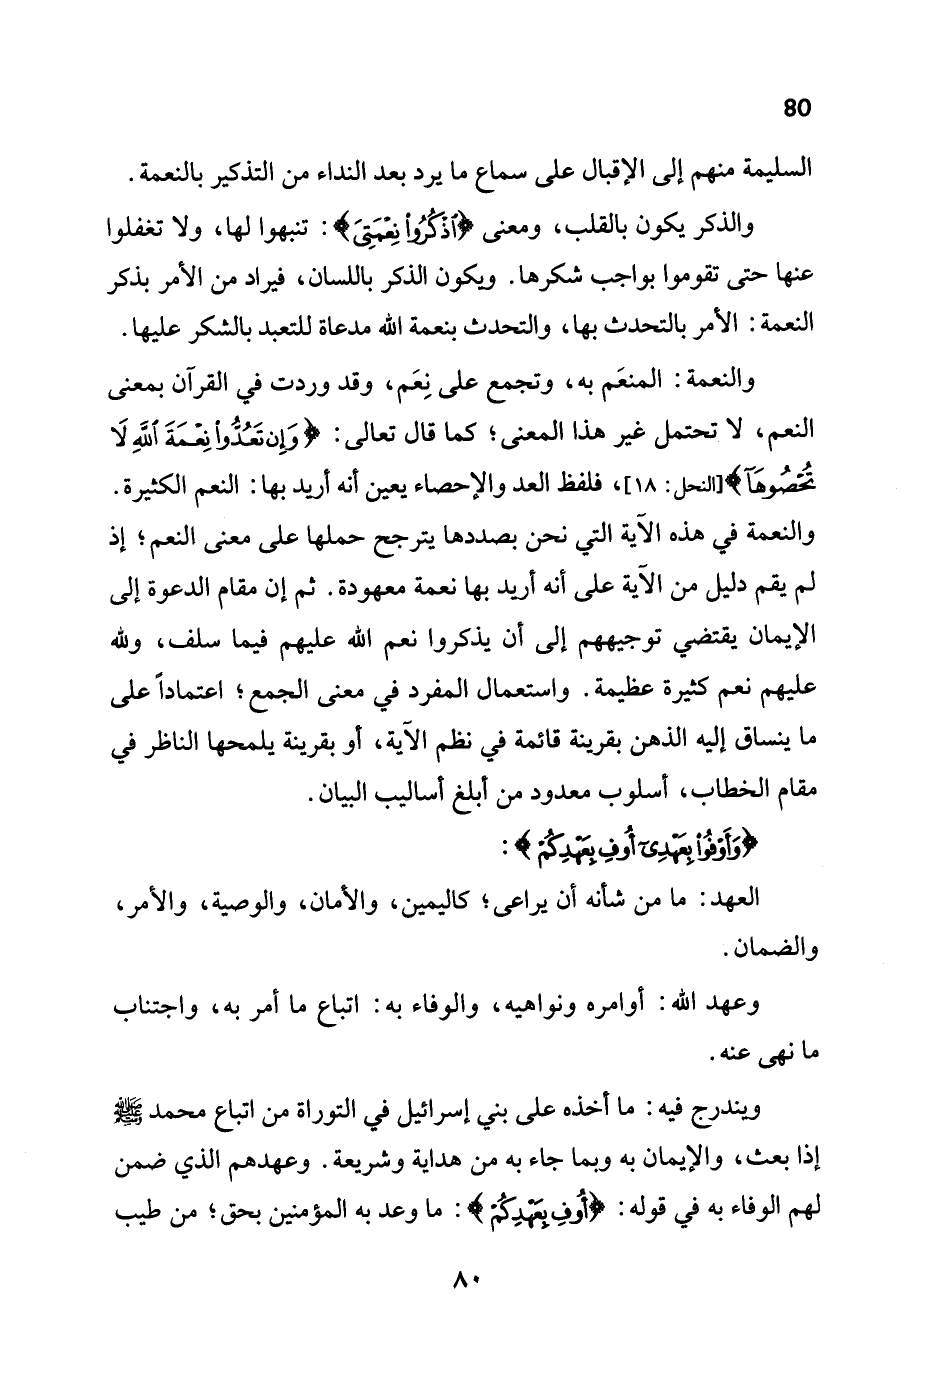 80
السليمة منهم إلى الإقبال على سماع ما يرد بعد النداء من التذكير بالنعمة.
والذكر يكون بالقلب، ومعنى ﴿ٱذْكُرُوا۟ نِعْمَتِىَ﴾: تنبهوا لها، ولا تغفلوا
عنها حتى تقوموا بواجب شكرها. ويكون الذكر باللسان، فيراد من الأمر بذكر
النعمة: الأمر بالتحدث بها، والتحدث بنعمة الله مدعاة للتعبد بالشكر عليها.
والنعمة: المنعَم به، وتجمع على نِعَم، وقد وردت في القرآن بمعنى
النعم، لا تحتمل غير هذا المعنى؛ كما قال تعالى: ﴿وَإِن تَعُدُّوا۟ نِعْمَةَ ٱللَّهِ لَا
تُحْصُوهَآ﴾ [النحل: ١٨]، فلفظ العد والإحصاء يعين أنه أريد بها: النعم الكثيرة.
والنعمة في هذه الآية التي نحن بصددها يترجح حملها على معنى النعم؛ إذ
لم يقم دليل من الآية على أنه أريد بها نعمة معهودة. ثم إن مقام الدعوة إلى
الإيمان يقتضي توجيههم إلى أن يذكروا نعم الله عليهم فيما سلف، ولله
عليهم نعم كثيرة عظيمة. واستعمال المفرد في معنى الجمع؛ اعتماداً على
ما ينساق إليه الذهن بقرينة قائمة في نظم الآية، أو بقرينة يلمحها الناظر في
مقام الخطاب، أسلوب معدود من أبلغ أساليب البيان.
﴿وَأَوْفُوا۟ بِعَهْدِىٓ أُوفِ بِعَهْدِكُمْ﴾:
العهد: ما من شأنه أن يراعى؛ كاليمين، والأمان، والوصية، والأمر،
والضمان.
وعهد الله: أوامره ونواهيه، والوفاء به: اتباع ما أمر به، واجتناب
ما نهى عنه.
ويندرج فيه: ما أخذه على بني إسرائيل في التوراة من اتباع محمد ﷺ
إذا بعث، والإيمان به وبما جاء به من هداية وشريعة. وعهدهم الذي ضمن
لهم الوفاء به في قوله: ﴿أُوفِ بِعَهْدِكُمْ﴾: ما وعد به المؤمنين بحق؛ من طيب
٨٠